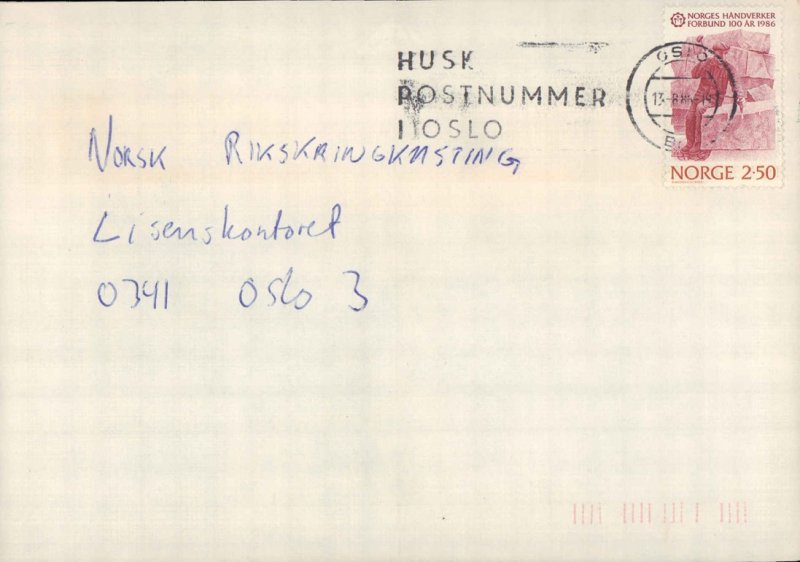 NORGES HÅNDVERKER
FORBUND 100 ÅR 1986
HUSK
POSTNUMMER
I OSLO
OSLO
NORGE 2·50
NORSK RIKSKRINGKASTING
Lisenskontoret
0341 Oslo 3